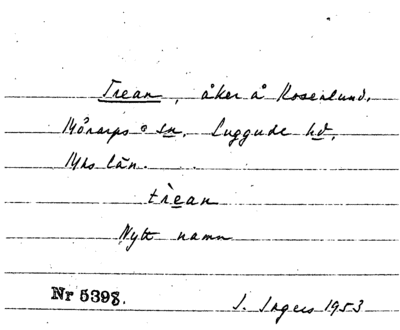 Trean, åker å Rosenlund,
Mörarps sn, Luggude hd,
Mhs län.
trèan
Nytt namn
Nr 5398. I. Ingers 1953